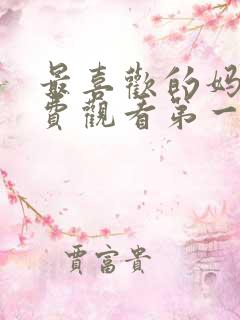 最喜歡的媽
費觀看第一
賈富貴